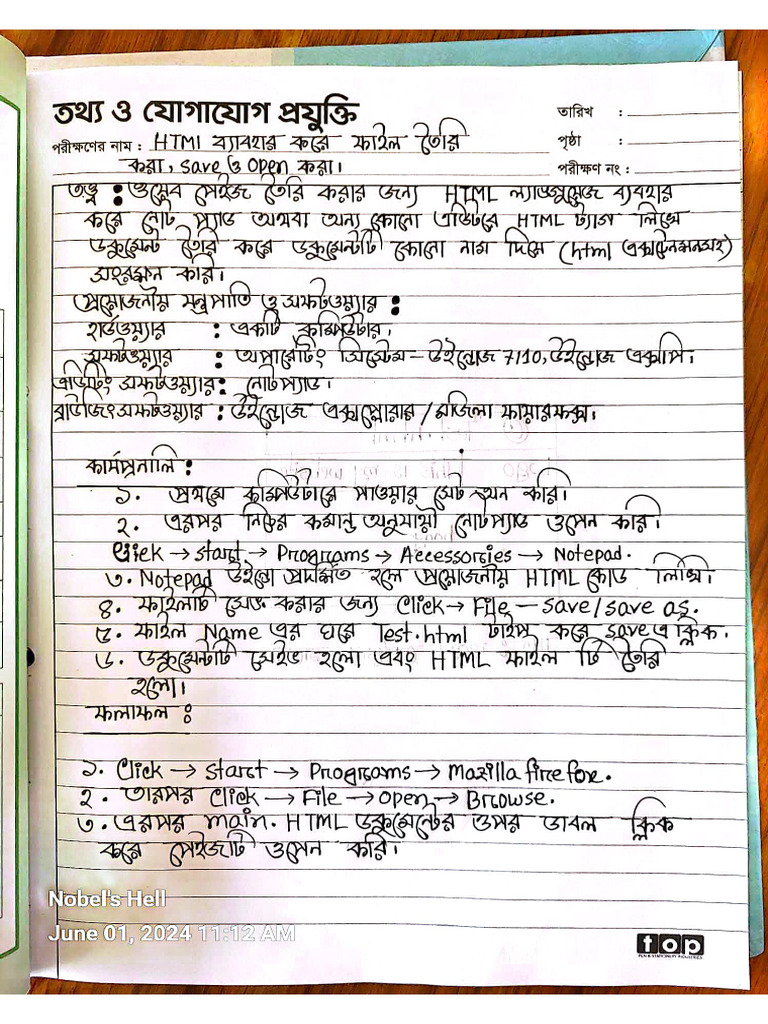 তথ্য ও যোগাযোগ প্রযুক্তি
তারিখ :
পরীক্ষণের নাম : HTMl ব্যবহার করে ফাইল তৈরি
পৃষ্ঠা :
করা, save ও open করা।
পরীক্ষণ নং :
তত্ত্ব : ওয়েব পেইজ তৈরি করার জন্য HTML ল্যাঙ্গুয়েজ ব্যবহার
করে নোট প্যাড অথবা অন্য কোনো এডিটরে HTML ট্যাগ লিখে
ডকুমেন্ট তৈরি করে ডকুমেন্টটি কোনো নাম দিয়ে (html এক্সটেনশনসহ)
সংরক্ষন করি।
প্রয়োজনীয় যন্ত্রপাতি ও সফটওয়্যার :
হার্ডওয়্যার : একটি কম্পিউটার,
সফটওয়্যার : অপারেটিং সিস্টেম – উইন্ডোজ 7/10, উইন্ডোজ এক্সপি।
এডিটিং সফটওয়্যার : নোটপ্যাড।
ব্রাউজিং সফটওয়্যার : উইন্ডোজ এক্সপ্লোরার / মজিলা ফায়ারফক্স।
কার্যপ্রনালি :
১. প্রথমে কম্পিউটারে পাওয়ার সেট অন করি।
২. এরপর নিচের কমান্ড অনুযায়ী নোটপ্যাড ওপেন করি।
Click → start → Programs → Accessories → Notepad.
৩. Notepad উইন্ডো প্রদর্শিত হলে প্রয়োজনীয় HTML কোড লিখি।
৪. ফাইলটি সেভ করার জন্য Click → File – save/save as.
৫. ফাইল Name এর ঘরে Test.html টাইপ করে save এ ক্লিক.
৬. ডকুমেন্টটি সেইভ হলো এবং HTML ফাইল টি তৈরি
হলো।
ফলাফল :
১. Click → start → Programs → Mozilla firefox.
২. তারপর Click → File → open → Browse.
৩. এরপর main. HTML ডকুমেন্টের ওপর ডাবল ক্লিক
করে পেইজটি ওপেন করি।
Nobel's Hell
June 01, 2024 11:12 AM
top